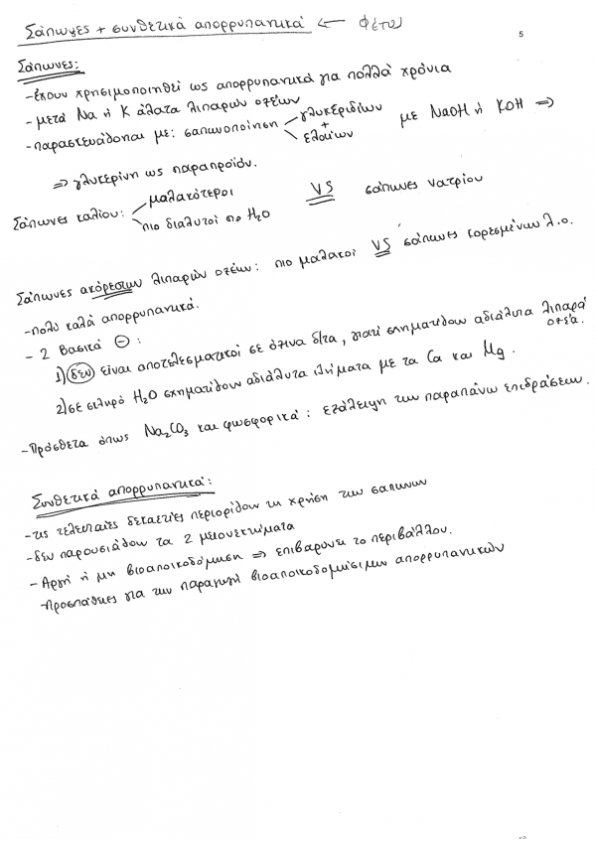 Σάπωνες + συνθετικά απορρυπαντικά ← Φέτος
5
Σάπωνες:
-έχουν χρησιμοποιηθεί ως απορρυπαντικά για πολλά χρόνια
-μετά Na ή K άλατα λιπαρών οξέων
-παρασκευάζονται με: σαπωνοποίηση γλυκεριδίων + ελαίων με NaOH ή KOH ⇒
⇒ γλυκερίνη ως παραπροϊόν.
Σάπωνες καλίου: μαλακότεροι VS σάπωνες νατρίου
πιο διαλυτοί στο H₂O
Σάπωνες ακόρεστων λιπαρών οξέων: πιο μαλακοί VS σάπωνες κορεσμένων λ.ο.
-πολύ καλά απορρυπαντικά.
- 2 βασικά ⊖:
1) δεν είναι αποτελεσματικοί σε όξινα δ/τα, γιατί σχηματίζουν αδιάλυτα λιπαρά οξέα.
2) σε σκληρό H₂O σχηματίζουν αδιάλυτα ιζήματα με τα Ca και Mg.
-Πρόσθετα όπως Na₂CO₃ και φωσφορικά: εξάλειψη των παραπάνω επιδράσεων.
Συνθετικά απορρυπαντικά:
-τις τελευταίες δεκαετίες περιορίζουν τη χρήση των σαπώνων
-δεν παρουσιάζουν τα 2 μειονεκτήματα
-Αργή ή μη βιοαποικοδόμηση ⇒ επιβαρύνει το περιβάλλον.
-Προσπάθειες για την παραγωγή βιοαποικοδομήσιμων απορρυπαντικών